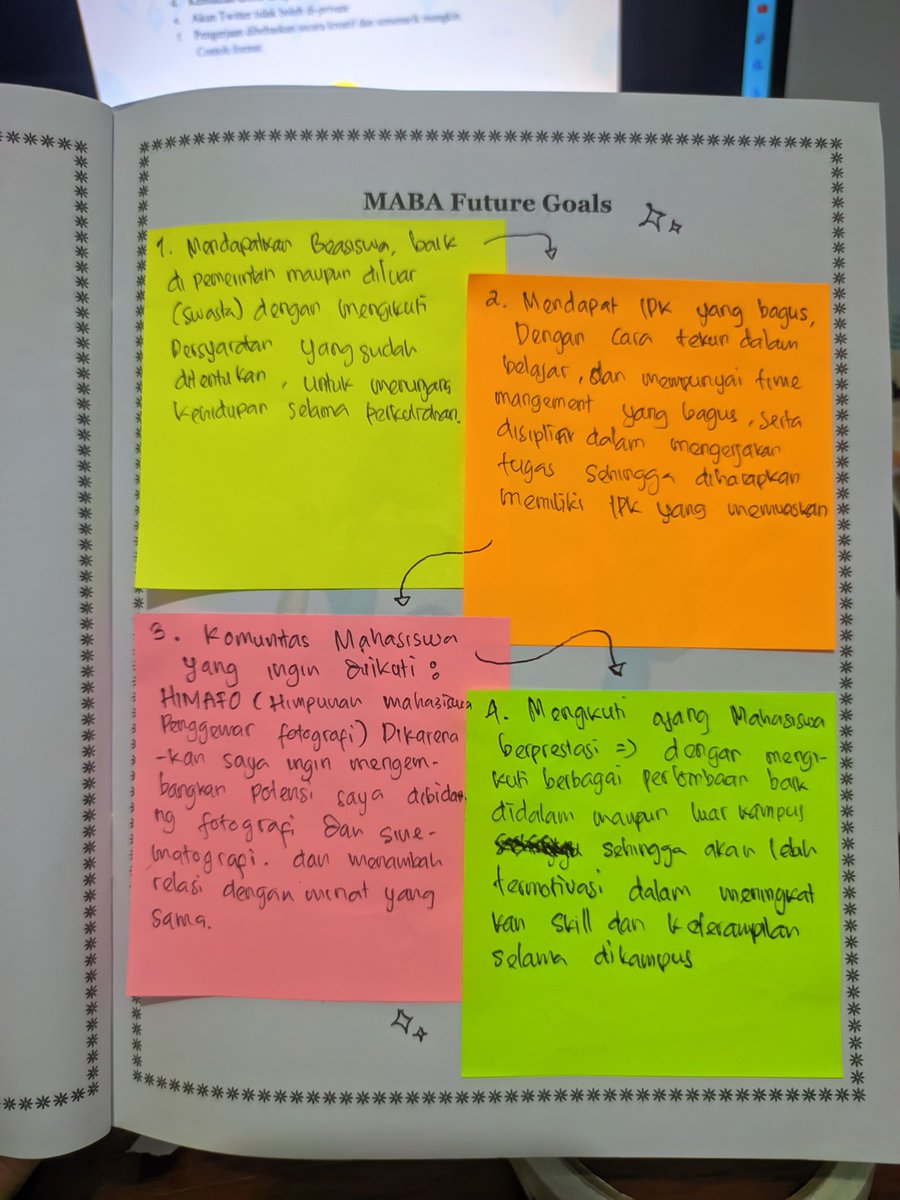 e. Akun Twitter tidak boleh di-private
f. Pengerjaan dibebaskan secara kreatif dan semenarik mungkin
Contoh format
MABA Future Goals
1. Mendapatkan Beasiswa, baik
di pemerintah maupun diluar
(swasta) dengan mengikuti
Persyaratan yang sudah
ditentukan, untuk menunjang
kehidupan selama perkuliahan.
2. Mendapat IPK yang bagus,
Dengan cara tekun dalam
belajar, dan mempunyai time
mangement yang bagus, serta
disiplin dalam mengerjakan
tugas sehingga diharapkan
memiliki IPK yang memuaskan
3. Komunitas Mahasiswa
yang ingin diikuti :
HIMAFO (Himpunan mahasiswa
Penggemar fotografi) Dikarena
-kan saya ingin mengem-
bangkan potensi saya dibida
ng fotografi dan sine-
matografi. dan menambah
relasi dengan minat yang
sama.
4. Mengikuti ajang Mahasiswa
berprestasi => dengan mengi-
kuti berbagai perlombaan baik
didalam maupun luar kampus
sehingga akan lebih
termotivasi dalam meningkat
kan skill dan keterampilan
selama dikampus